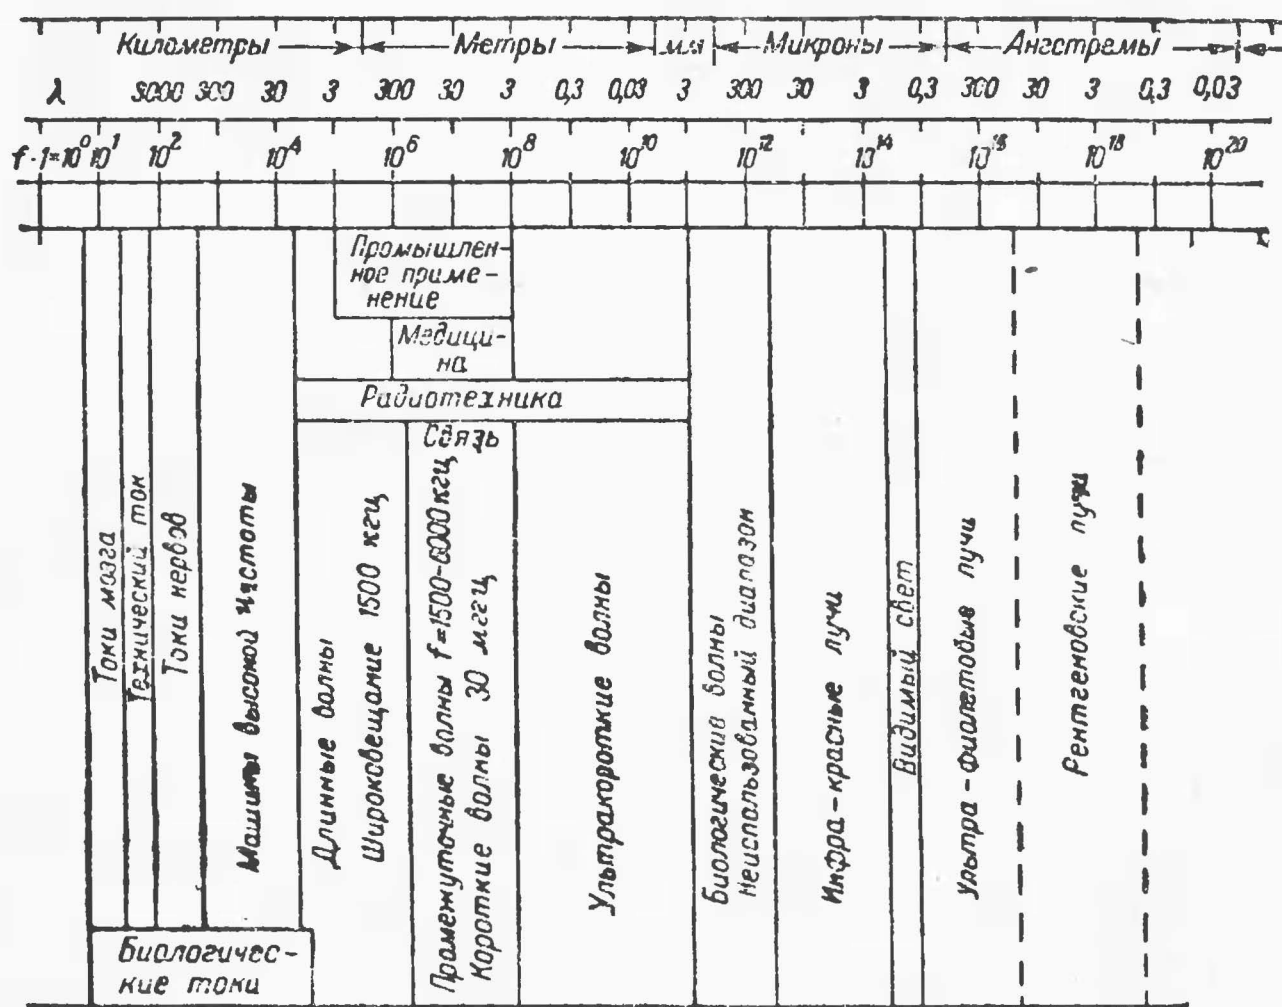 Километры Метры мм Микроны Ангстремы
λ 3000 300 30 3 300 30 3 0,3 0,03 3 300 30 3 0,3 300 30 3 0,3 0,03
f·1=10⁰ 10¹ 10² 10⁴ 10⁶ 10⁸ 10¹⁰ 10¹² 10¹⁴ 10¹⁶ 10¹⁸ 10²⁰
Промышлен-
ное приме-
нение
Медици-
на
Радиотехника
Связь
Токи мозга
Технический ток
Токи нервов
Машины высокой частоты
Длинные волны
Широковещание 1500 кгц
Промежуточные волны f=1500-6000 кгц
Короткие волны 30 мггц
Ультракороткие волны
Биологические волны
Неиспользованный диапазон
Инфра-красные лучи
Видимый свет
Ультра-фиолетовые лучи
Рентгеновские лучи
Биологичес-
кие токи